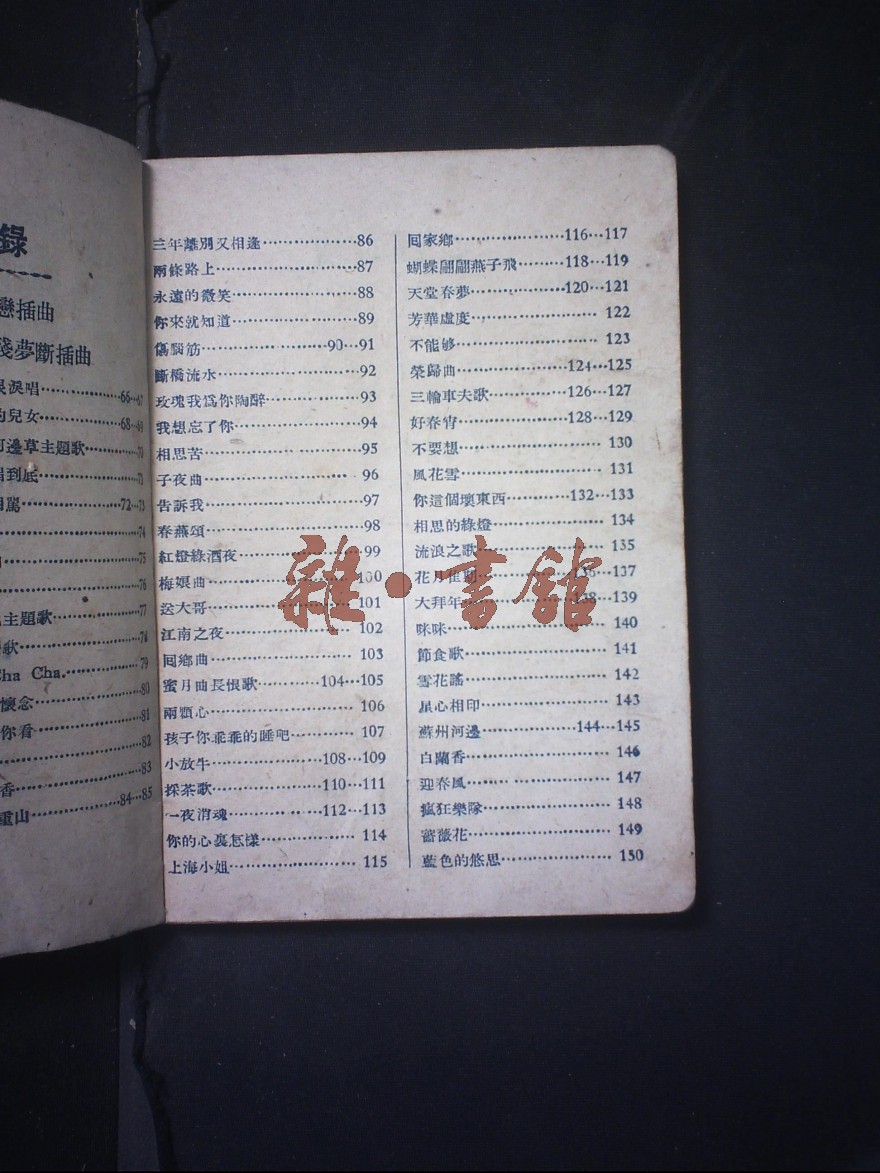 錄
戀插曲
殘夢斷插曲
淚唱……66…67
的兒女……68…69
河邊草主題歌……70
唱到底……71
……72…73
……74
……75
……76
主題歌……77
歌……78
Cha Cha.……79
懷念……80
你看……81
……82
香……83
重山……84…85
三年離別又相逢……86
兩條路上……87
永遠的微笑……88
你來就知道……89
傷腦筋……90…91
斷橋流水……92
玫瑰我爲你陶醉……93
我想忘了你……94
相思苦……95
子夜曲……96
告訴我……97
春燕頌……98
紅燈綠酒夜……99
梅娘曲……100
送大哥……101
江南之夜……102
囘鄉曲……103
蜜月曲長恨歌……104…105
兩顆心……106
孩子你乖乖的睡吧……107
小放牛……108…109
採茶歌……110…111
一夜消魂……112…113
你的心裏怎樣……114
上海小姐……115
囘家鄉……116…117
蝴蝶翩翩燕子飛……118…119
天堂春夢……120…121
芳華虛度……122
不能够……123
榮歸曲……124…125
三輪車夫歌……126…127
好春宵……128…129
不要想……130
風花雪……131
你這個壞東西……132…133
相思的綠燈……134
流浪之歌……135
花月佳期……136…137
大拜年……138…139
咪咪……140
節食歌……141
雪花謠……142
星心相印……143
蘇州河邊……144…145
白蘭香……146
迎春風……147
瘋狂樂隊……148
薔薇花……149
藍色的悠思……150
雜·書館